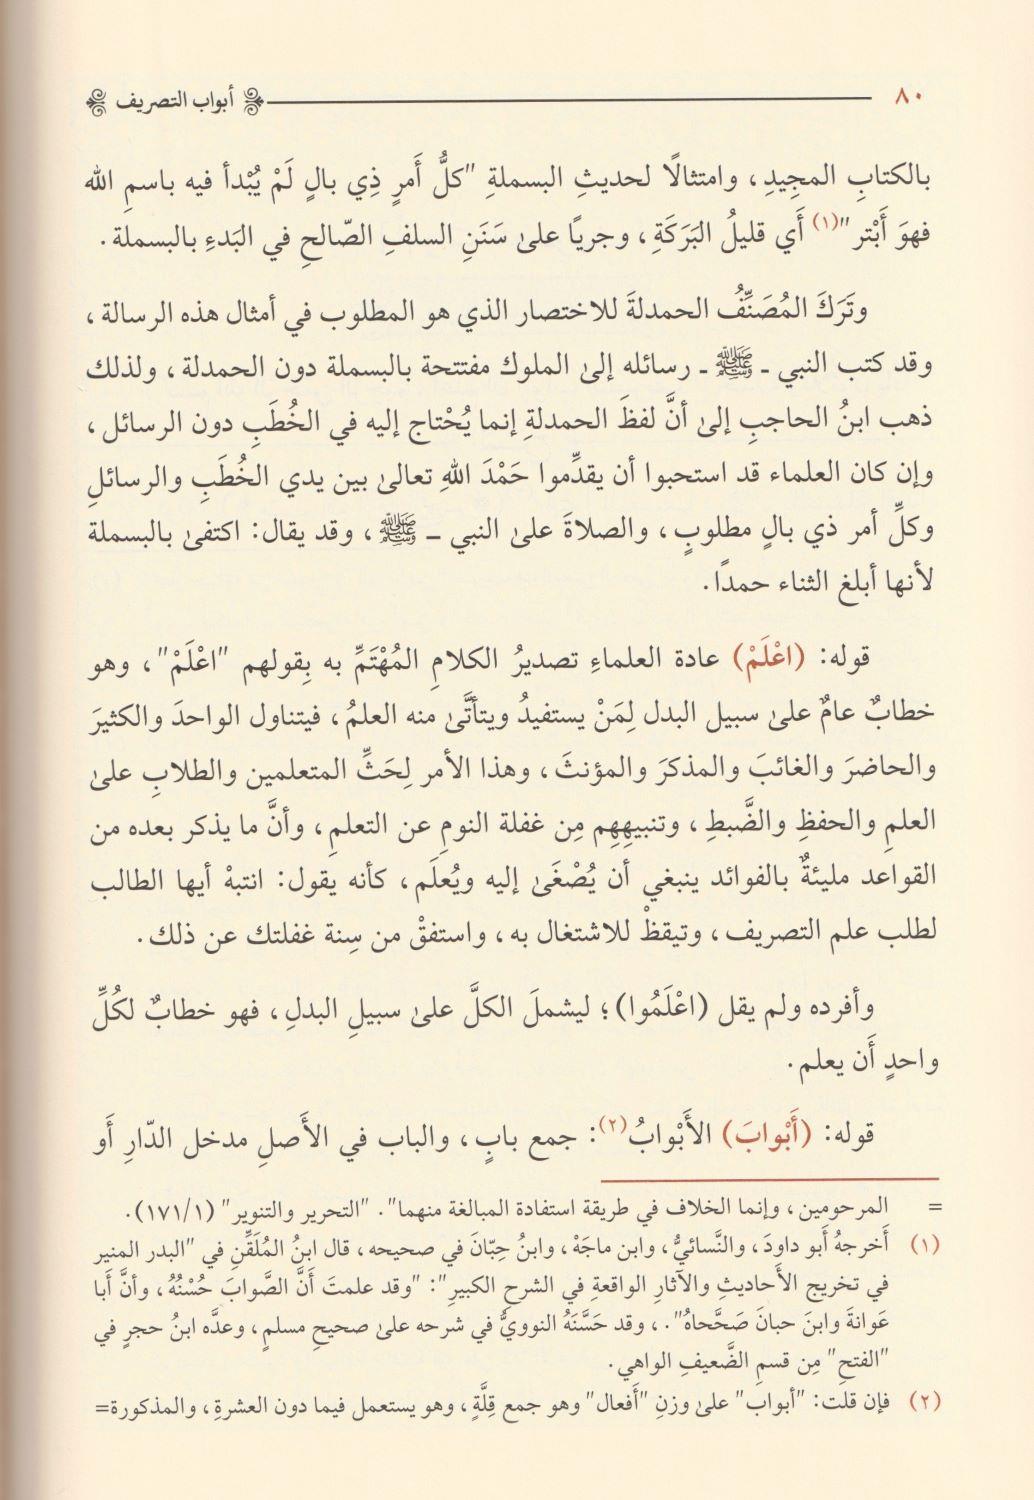 ٨٠ أبواب التصريف
بالكتابِ المجِيدِ، وامتثالًا لحديثِ البسملةِ "كلُّ أَمرٍ ذِي بالٍ لَمْ يُبْدأ فيه باسمِ الله
فهوَ أَبْتر"(١) أَي قليلُ البَرَكَةِ، وجريًا علىٰ سَنَنِ السلفِ الصّالحِ في البَدءِ بالبسملة.
وتَرَكَ المُصَنِّفُ الحمدلةَ للاختصار الذي هو المطلوب في أمثال هذه الرسالة،
وقد كتب النبي ـ ﷺ ـ رسائله إلىٰ الملوك مفتتحة بالبسملة دون الحمدلة، ولذلك
ذهب ابنُ الحاجبِ إلىٰ أنَّ لفظَ الحمدلةِ إنما يُحْتاج إليه في الخُطَبِ دون الرسائل،
وإن كان العلماء قد استحبوا أن يقدِّموا حَمْدَ اللهِ تعالىٰ بين يدي الخُطَبِ والرسائلِ
وكلِّ أمر ذي بالٍ مطلوبٍ، والصلاةَ علىٰ النبي ـ ﷺ، وقد يقال: اكتفىٰ بالبسملة
لأنها أبلغ الثناء حمدًا.
قوله: (اعْلَمْ) عادة العلماءِ تصديرُ الكلامِ المُهْتَمِّ به بِقولهم "اعْلَمْ"، وهو
خطابٌ عامٌ علىٰ سبيل البدل لِمَنْ يستفيدُ ويتأتَّىٰ منه العلمُ، فيتناول الواحدَ والكثيرَ
والحاضرَ والغائبَ والمذكرَ والمؤنثَ، وهذا الأمر لِحَثِّ المتعلمين والطلابِ علىٰ
العلمِ والحفظِ والضَّبطِ، وتنبيهِهِم مِن غفلة النومِ عن التعلمِ، وأنَّ ما يذكر بعده من
القواعد مليئةٌ بالفوائد ينبغي أن يُصْغَىٰ إليه ويُعلَم، كأنه يقول: انتبهْ أيها الطالب
لطلب علم التصريف، وتيقظْ للاشتغال به، واستفقْ من سِنة غفلتك عن ذلك.
وأفرده ولم يقل (اعْلَمُوا)؛ ليشملَ الكلَّ علىٰ سبيلِ البدلِ، فهو خطابٌ لكُلِّ
واحدٍ أَن يعلم.
قوله: (أَبْوابَ) الأَبْوابُ(٢): جمع بابٍ، والباب في الأَصلِ مدخل الدّارِ أَو
= المرحومين، وإنما الخلاف في طريقة استفادة المبالغة منهما". "التحرير والتنوير" (١/١٧١).
(١) أَخرجهُ أَبو داودَ، والنَّسائيُّ، وابن ماجَهْ، وابنُ حِبّانَ في صحيحه، قال ابنُ المُلَقِّنِ في "البدر المنير
في تخريج الأَحاديثِ والآثارِ الواقعةِ في الشرح الكبيرِ": "وقد علمتَ أَنَّ الصَّوابَ حُسْنُهُ، وأنَّ أَبا
عَوانةَ وابنَ حبانَ صَحَّحاهُ".، وقد حَسَّنَهُ النوويُّ في شرحه علىٰ صحيحِ مسلمٍ، وعدَّه ابنُ حجرٍ في
"الفتحِ" مِن قسمِ الضَّعيفِ الواهي.
(٢) فإن قلت: "أبواب" علىٰ وزنِ "أَفعال" وهو جمع قِلَّةٍ، وهو يستعمل فيما دون العشرةِ، والمذكورة=